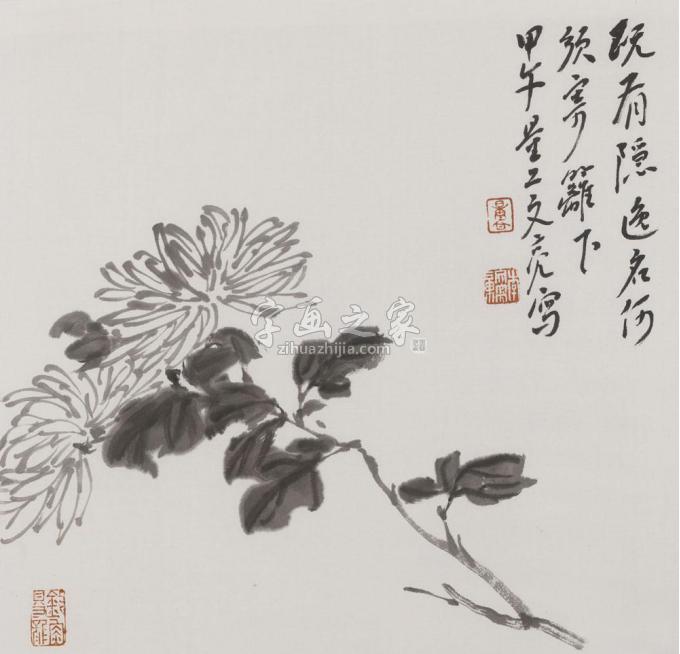 既有隐逸名何
须寄籬下
甲午星工文亮写
字画之家
zihuazhijia.com